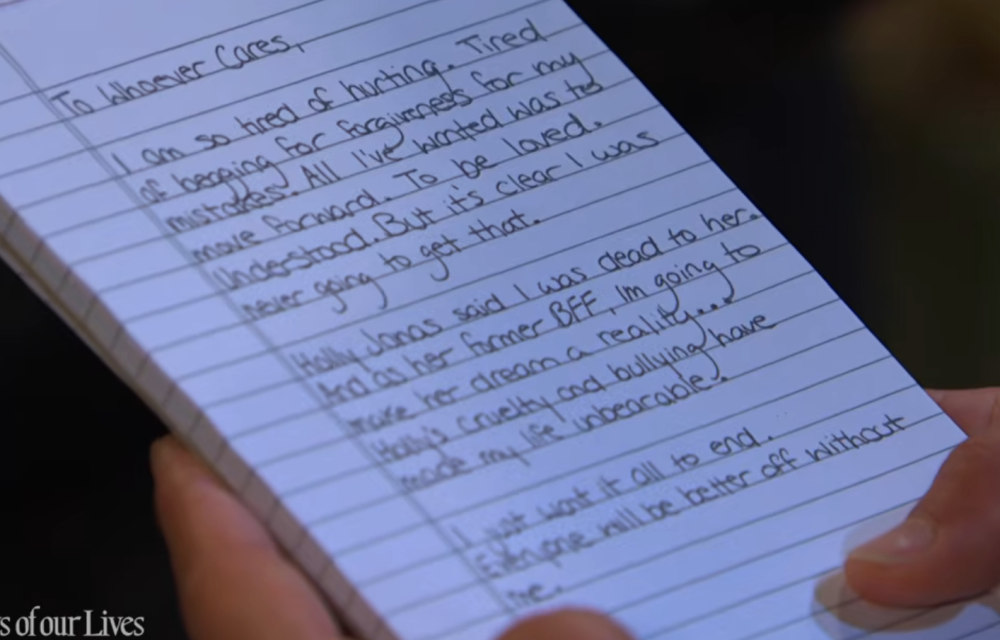 To Whoever Cares,
I am so tired of hurting. Tired
of begging for forgiveness for my
mistakes. All I've wanted was to
move forward. To be loved.
Understood. But it's clear I was
never going to get that.
Holly Jonas said I was dead to her.
And as her former BFF, Im going to
make her dream a reality...
Holly's cruelty and bullying have
made my life unbearable.
I just want it all to end.
Everyone will be better off without
me.
s of our Lives